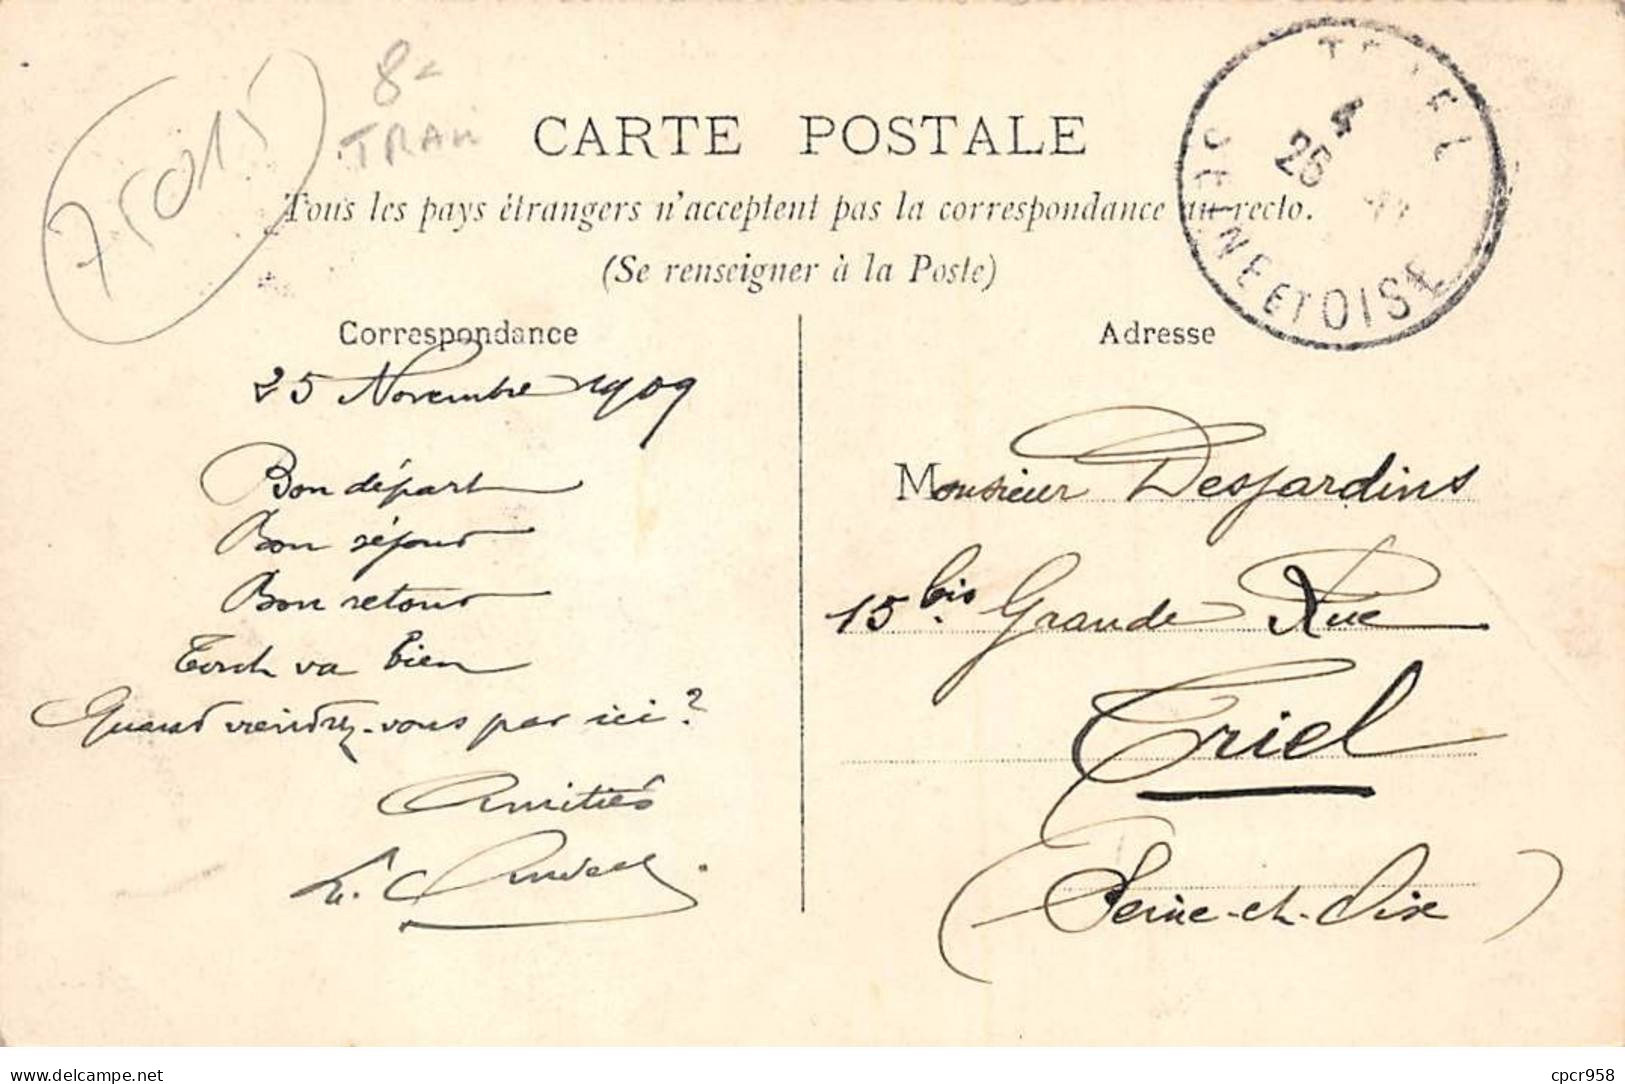 75015
8-
TRAM
CARTE POSTALE
Tous les pays étrangers n'acceptent pas la correspondance au recto.
(Se renseigner à la Poste)
TRIEL
4
26
SEINE ET OISE
Correspondance
25 Novembre 1909
Bon départ
Bon séjour
Bon retour
va bien
Quand viendrez-vous par ici?
Amitiés
Adresse
Monsieur Desjardins
15 bis Grande Rue
Triel
(Seine-et-Oise)
delcampe.net
cpcr958